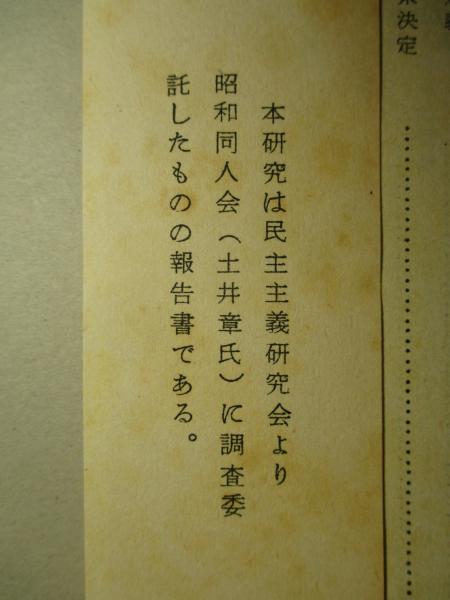 決定
本研究は民主主義研究会より
昭和同人会（土井章氏）に調査委
託したものの報告書である。